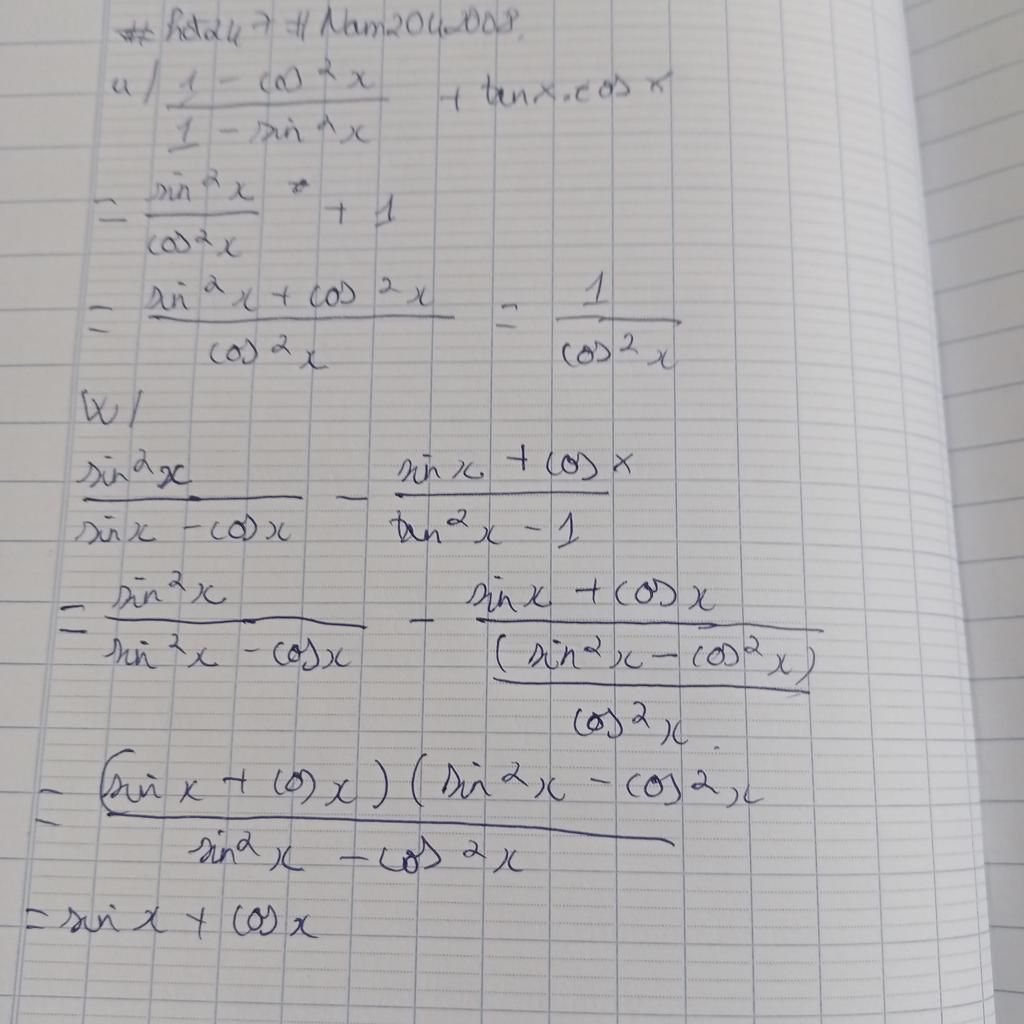 # hot24 7 # Nam2042008.
u/ \frac{1 - cos^2 x}{1 - sin^2 x} + tanx.cos x
= \frac{sin^2 x}{cos^2 x} + 1
= \frac{sin^2 x + cos^2 x}{cos^2 x} = \frac{1}{cos^2 x}
\frac{sin^2 x}{sin x - cos x} - \frac{sin x + cos x}{tan^2 x - 1}
= \frac{sin^2 x}{sin^2 x - cos x} - \frac{sin x + cos x}{\frac{(sin^2 x - cos^2 x)}{cos^2 x}}
= \frac{(sin x + cos x)(sin^2 x - cos^2 x}{sin^2 x - cos^2 x}
= sin x + cos x